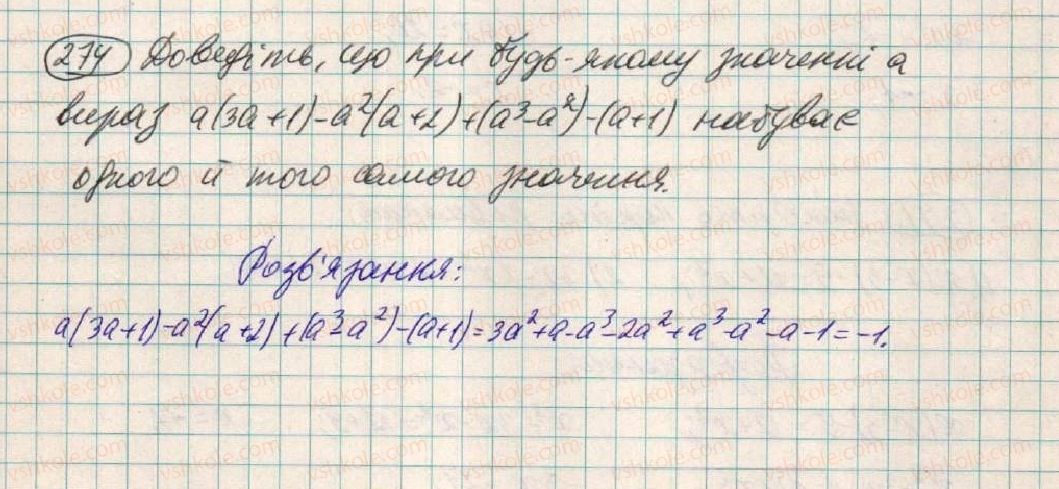 274 Доведіть, що при будь-якому значенні a
вираз a(3a+1)-a²(a+2)+(a³-a²)-(a+1) набуває
одного й того самого значення.
Розв'язання:
a(3a+1)-a²(a+2)+(a³-a²)-(a+1)=3a²+a-a³-2a²+a³-a²-a-1=-1.